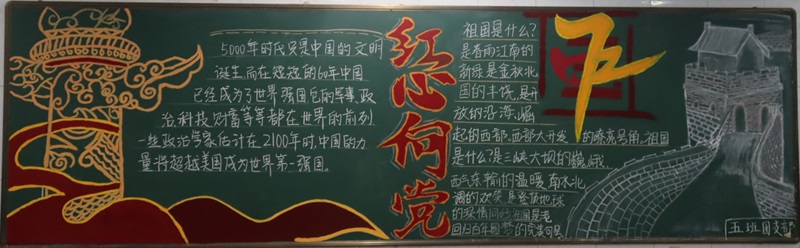 5000年时代交替中国的文明
诞生而在短短的60年中国
已经成为了世界强国包的军事、政
治、科技、财富等等都在世界的前列
一些政治学家估计在2100年时,中国的力
量将超越美国成为世界第一强国。
红心向党
祖国是什么?
是春雨江南的
新绿是金秋北
国的丰饶,是开
放的沿海,崛
起的西部,西部大开发的嘹亮号角。祖国
是什么?是三峡大坝的巍峨,
西气东输的温暖,南水北
调的欢笑是登顶地球
的豪情祖国是港
回归百年圆梦的
五班团支部